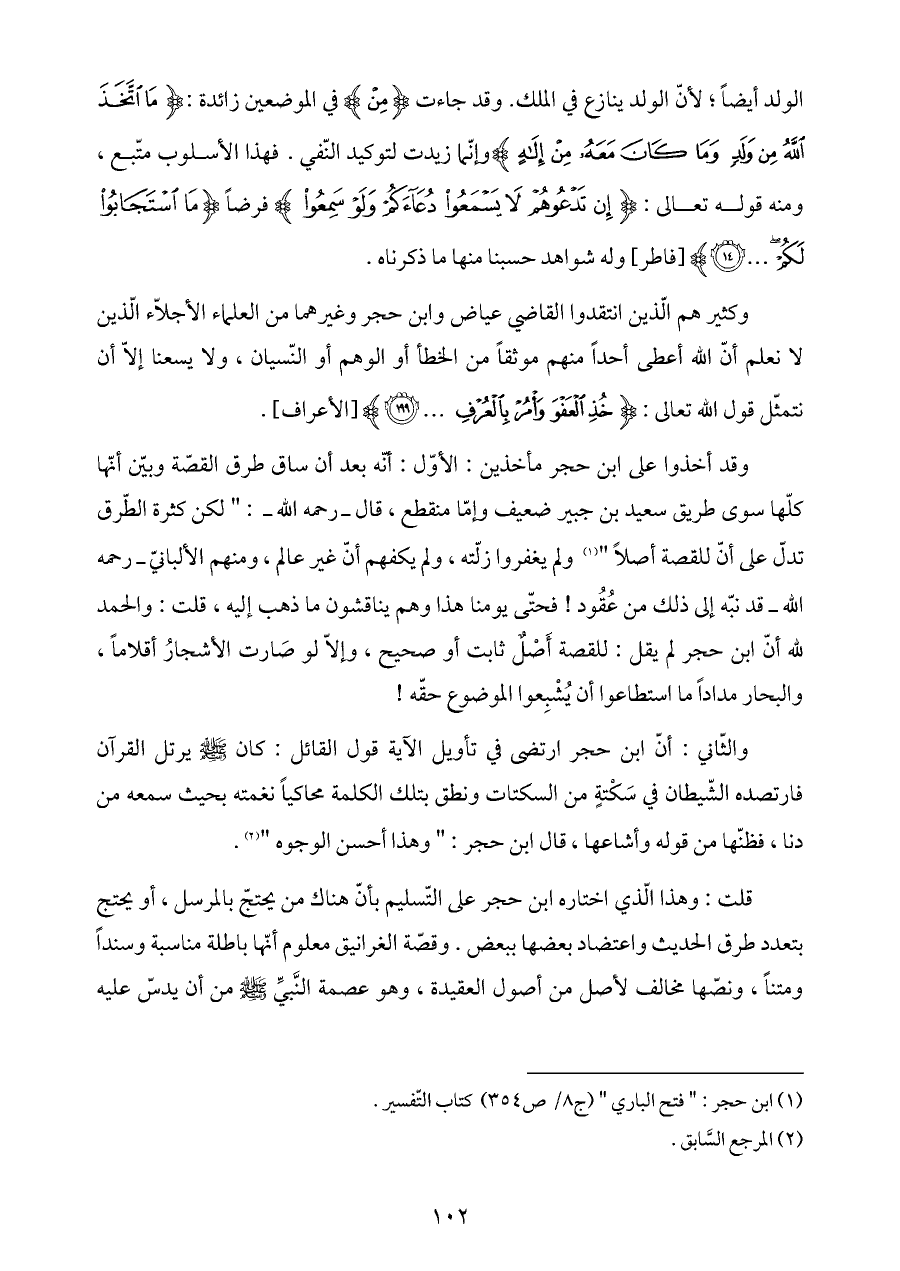 الولد أيضاً ؛ لأنّ الولد ينازع في الملك. وقد جاءت ﴿مِنْ﴾ في الموضعين زائدة :﴿ مَا ٱتَّخَذَ
ٱللَّهُ مِن وَلَدٍ وَمَا كَانَ مَعَهُۥ مِنْ إِلَٰهٍ ﴾وإنّما زيدت لتوكيد النّفي . فهذا الأسلوب متّبع ،
ومنه قولـه تعـالى : ﴿ إِن تَدْعُوهُمْ لَا يَسْمَعُوا۟ دُعَآءَكُمْ وَلَوْ سَمِعُوا۟ ﴾ فرضاً ﴿مَا ٱسْتَجَابُوا۟
لَكُمْ ۖ ... ۝١٤﴾ [فاطر] وله شواهد حسبنا منها ما ذكرناه .
وكثير هم الّذين انتقدوا القاضي عياض وابن حجر وغيرهما من العلماء الأجلاّء الّذين
لا نعلم أنّ الله أعطى أحداً منهم موثقاً من الخطأ أو الوهم أو النّسيان ، ولا يسعنا إلاّ أن
نتمثّل قول الله تعالى : ﴿ خُذِ ٱلْعَفْوَ وَأْمُرْ بِٱلْعُرْفِ ... ۝١٩٩ ﴾ [الأعراف] .
وقد أخذوا على ابن حجر مأخذين : الأوّل : أنّه بعد أن ساق طرق القصّة وبيّن أنّها
كلّها سوى طريق سعيد بن جبير ضعيف وإمّا منقطع ، قال ـ رحمه الله ـ : " لكن كثرة الطّرق
تدلّ على أنّ للقصة أصلاً "(١) ولم يغفروا زلّته ، ولم يكفهم أنّ غير عالم ، ومنهم الألبانيّ ـ رحمه
الله ـ قد نبّه إلى ذلك من عُقُود ! فحتّى يومنا هذا وهم يناقشون ما ذهب إليه ، قلت : والحمد
لله أنّ ابن حجر لم يقل : للقصة أَصْلٌ ثابت أو صحيح ، وإلاّ لو صَارت الأشجارُ أقلاماً ،
والبحار مداداً ما استطاعوا أن يُشْبِعوا الموضوع حقّه !
والثّاني : أنّ ابن حجر ارتضى في تأويل الآية قول القائل : كان ﷺ يرتل القرآن
فارتصده الشّيطان في سَكْتةٍ من السكتات ونطق بتلك الكلمة محاكياً نغمته بحيث سمعه من
دنا ، فظنّها من قوله وأشاعها ، قال ابن حجر : " وهذا أحسن الوجوه "(٢) .
قلت : وهذا الّذي اختاره ابن حجر على التّسليم بأنّ هناك من يحتجّ بالمرسل ، أو يحتج
بتعدد طرق الحديث واعتضاد بعضها ببعض . وقصّة الغرانيق معلوم أنّها باطلة مناسبة وسنداً
ومتناً ، ونصّها مخالف لأصل من أصول العقيدة ، وهو عصمة النَّبيِّ ﷺ من أن يدسّ عليه
(١) ابن حجر : " فتح الباري " (ج٨/ ص٣٥٤) كتاب التّفسير .
(٢) المرجع السَّابق .
١٠٢